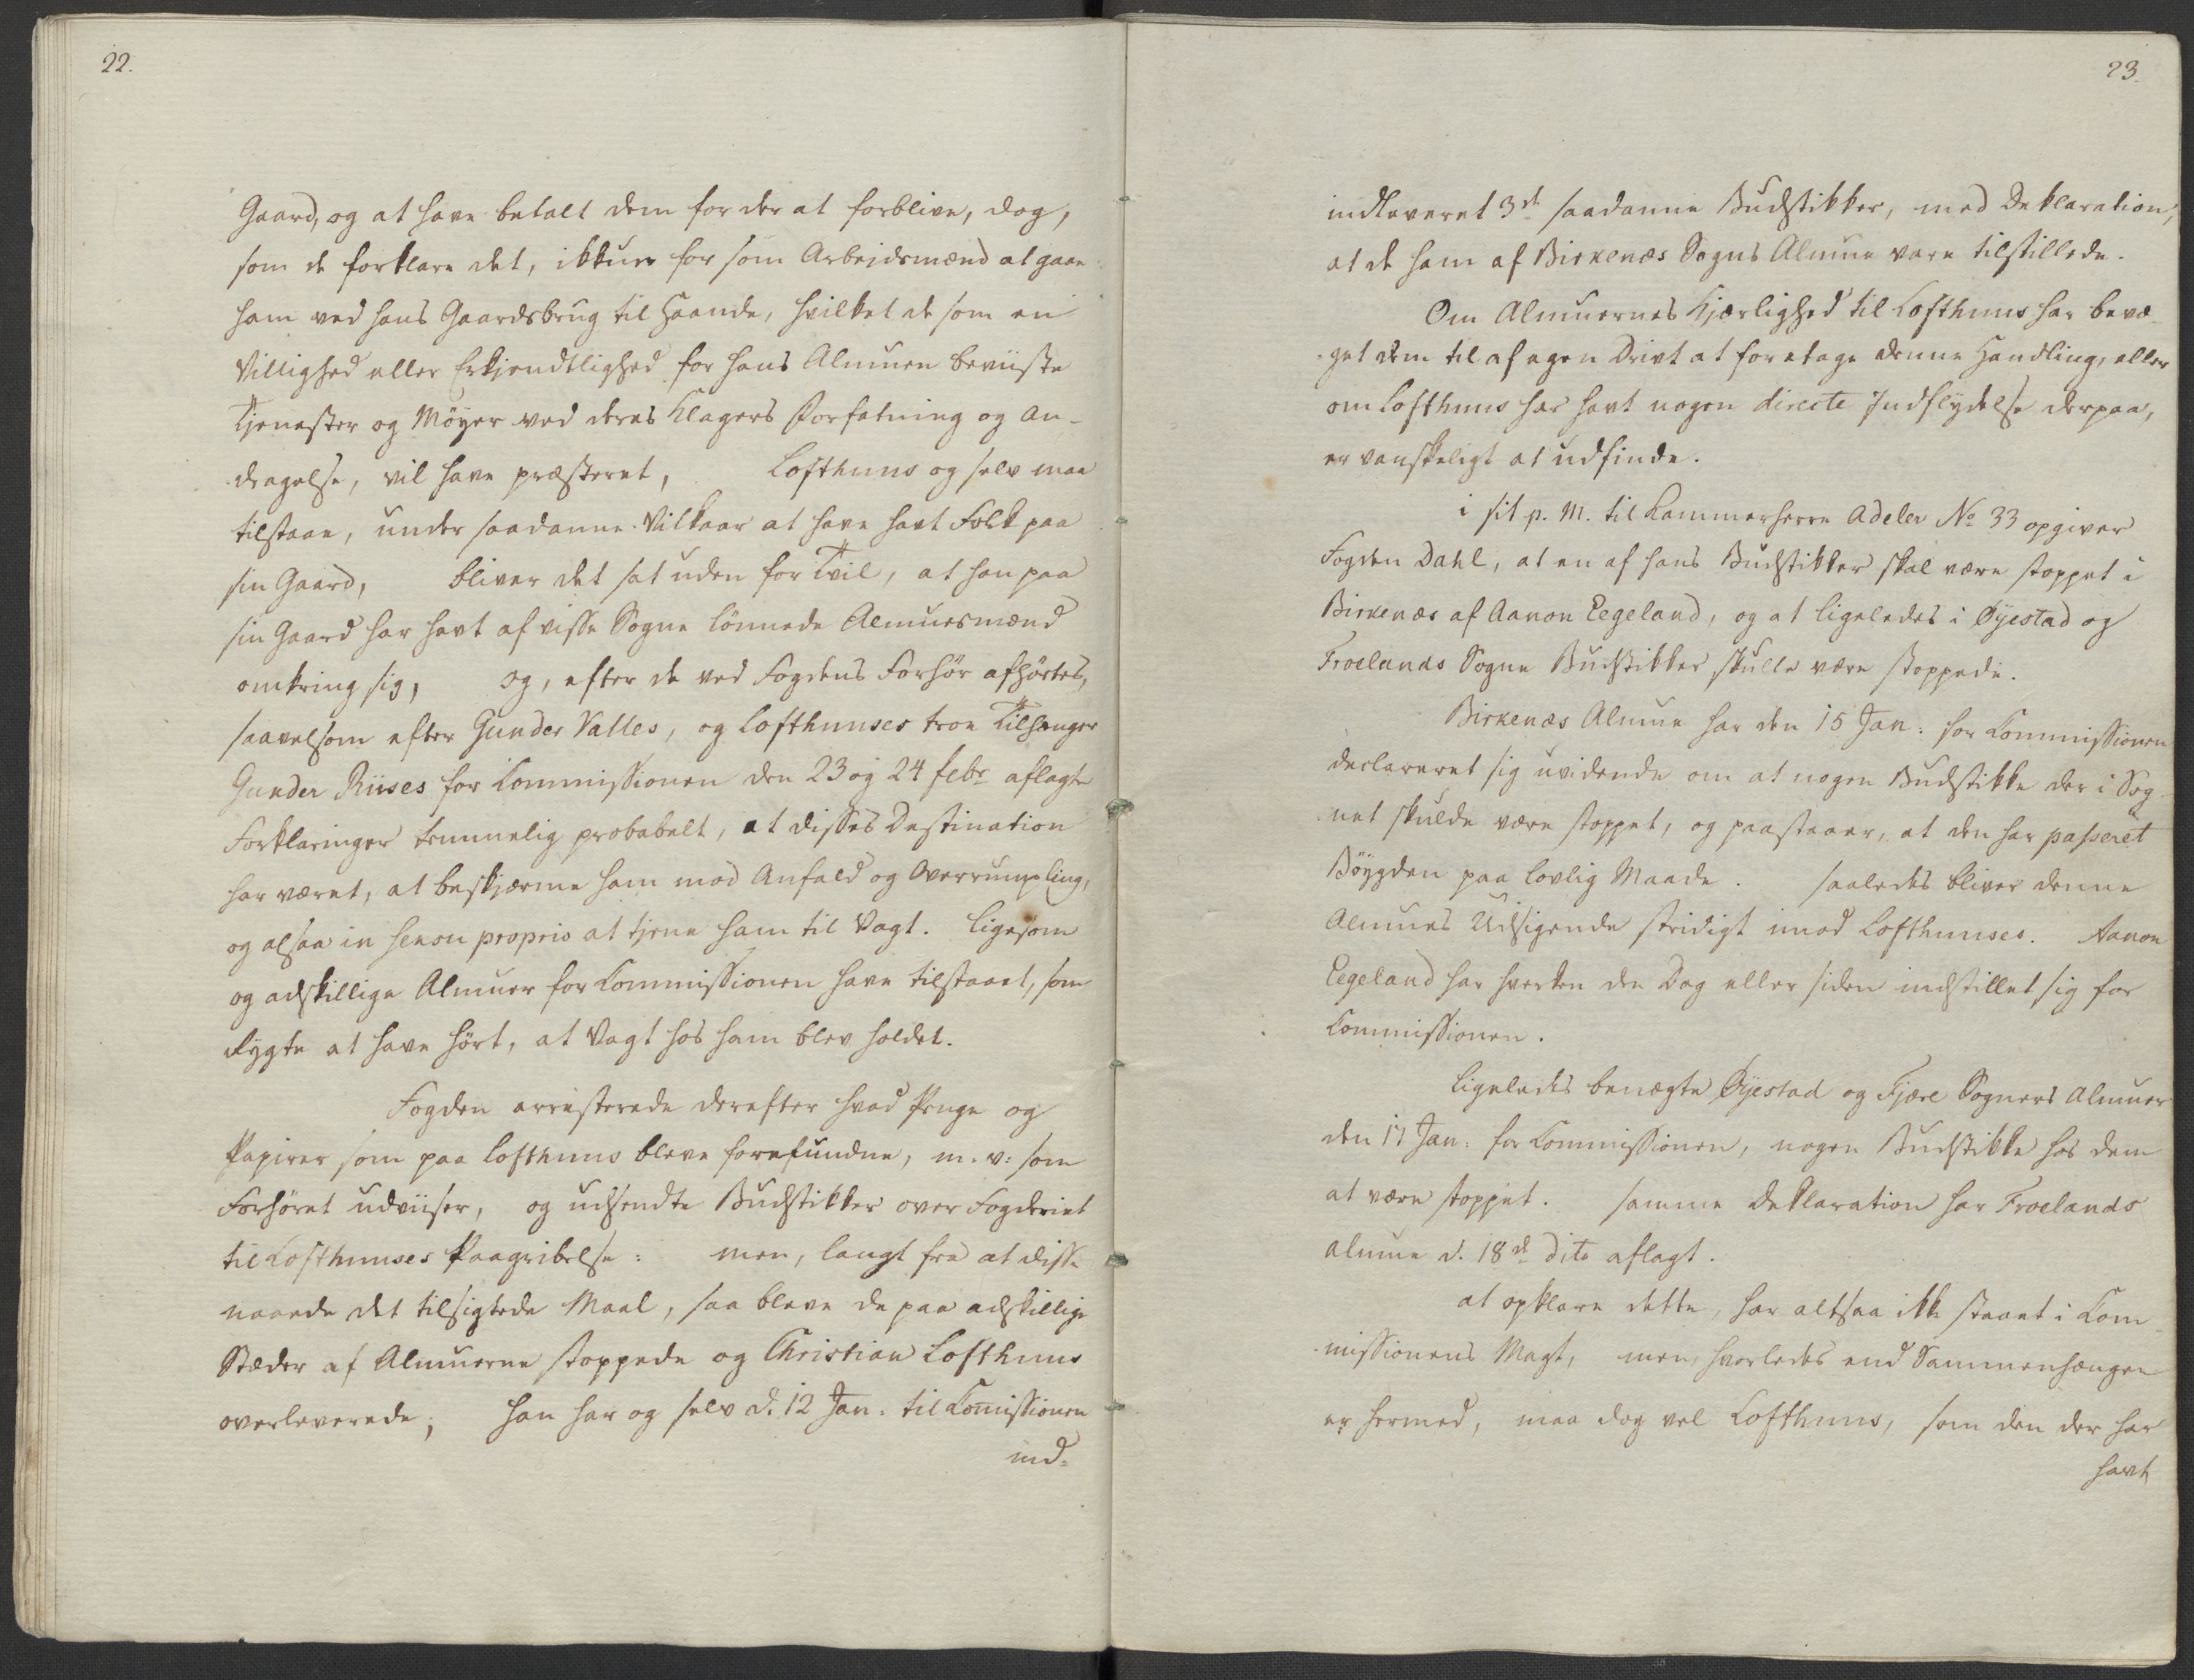 22.
Gaard, og at have betalt dem for der at forblive, dog,
som de forklare det, ikkun for som Arbeidsmænd at gaae
ham ved hans Gaardsbrug til Haande, hvilket de som en
Villighed eller Erkjendtlighed for hans Almuen beviiste
Tjenester og Möyer ved deres Klagers Forfatning og An-
dragelse, vil have præsteret, Lofthuus og selv maa
tilstaae, under saadanne Vilkaar at have havt Folk paa
sin Gaard, bliver det sat uden for Tvil, at han paa
sin Gaard har havt af visse Sogne lönnede Almuesmænd
omkring sig, og, efter de ved Fogdens Forhör afhörtes,
saavelsom efter Gunder Valles, og Lofthuuses troe Tilhænger
Gunder Riises for Commissionen den 23 og 24 febr aflagte
Forklaringer temmelig probabelt, at disses Destination
har været, at beskjærme ham mod Anfald og Overrumpling,
og altsaa in sensu proprio at tjene ham til Vagt. Ligesom
og adskillige Almuer for Commissionen have tilstaaet, som
Rygte at have hört, at Vagt hos ham blev holdet.
Fogden arresterede derefter hvad Penge og
Papirer som paa Lofthuus bleve forefundne, m. v: som
Forhöret udviiser, og udsendte Budstikker over Fogderiet
til Lofthuuses Paagribelse: men, langt fra at disse
naaede det tilsigtede Maal, saa bleve de paa adskillige
Stæder af Almuerne stoppede og Christian Lofthuus
overleverede, han har og selv d. 12 Jan: til Com̄issionen
ind-
23.
indleveret 3de saadanne Budstikker, med Deklaration,
at de ham af Birkenæs Sogns Almue vare tilstillede.
Om Almuernes Kjærlighed til Lofthuus har bevæ-
get dem til af egen Drivt at foretage denne Handling, eller
om Lofthuus har havt nogen directe Indflydelse derpaa,
er vanskeligt at udfinde.
i sit p. M. til Kammerherre Adeler No 33 opgiver
Fogden Dahl, at en af hans Budstikker skal være stoppet i
Birkenæs af Aanon Eegeland, og at ligeledes i Øyestad og
Froelands Sogne Budstikker skulle være stoppede.
Birkenæs Almue har den 15 Jan: for Commissionen
declareret sig uvidende om at nogen Budstikke der i Sog-
net skulde være stoppet, og paastaaer, at den har passeret
Böygden paa lovlig Maade. saaledes bliver denne
Almues Udsigende stridigt imod Lofthuuses. Aanon
Eegeland har hverken den Dag eller siden indstillet sig for
Commissionen.
Ligeledes benægte Øyestad og Fjære Sogners Almuer
den 17 Jan: for Commissionen, nogen Budstikke hos dem
at være stoppet. samme Deklaration har Froelands
Almue d. 18de dito aflagt.
at opklare dette, har altsaa ikke staaet i Com-
missionens Magt, men, hvorledes end Sammenhængen
er hermed, maa dog vel Lofthuus, som den der har
havt